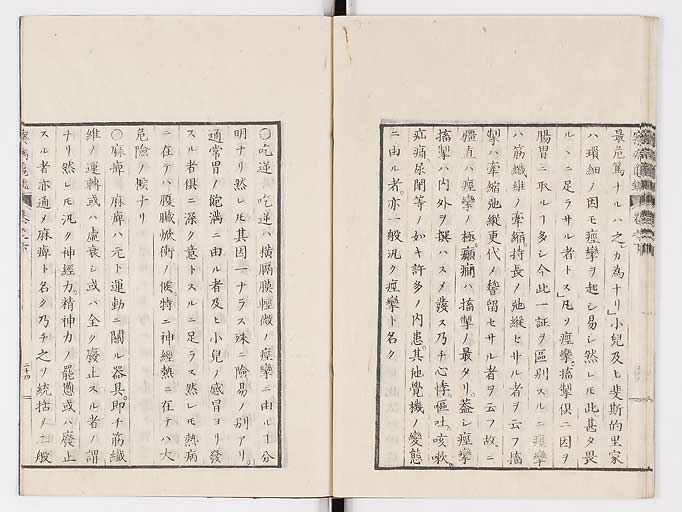 最危篤ナルハ之カ為ナリ」小兒及ヒ斐斯的里家
ハ瑣細ノ因モ痙攣ヲ起シ易シ然レモ此甚タ畏
ルヽニ足ラサル者トス」凡ソ痙攣搐掣倶ニ因ヲ
腸胃ニ取ルヿ多シ今此一証ヲ區別スルニ痙攣
ハ筋纖維ノ牽縮持長ノ弛緩セサル者ヲ云フ搐
掣ハ牽縮弛縱更代メ暫留セサル者ヲ云フ故ニ
繮直ハ痙攣ノ極癲癇ハ搐掣ノ最タリ蓋シ痙攣
搐掣ハ内外ヲ撰ハスメ發ス乃チ心悸嘔吐咳嗽
疝痛尿閉等ノ如キ許多ノ内患其他覺機ノ變態
ニ由ル者亦一般汎ク痙攣ト名ク
○吃逆 吃逆ハ横膈膜輕微ノ痙攣ニ由ルヿ分
明ナリ然レモ其因一ナラス殊ニ險易ノ別アリ
通常胃ノ飽滿ニ由ル者及ヒ小兒ノ感冒ヨリ發
スル者倶ニ深ク意トスルニ足ラス然レモ熱病
ニ在テハ腹臓焮衝ノ候特ニ神經熱ニ在テハ大
危險ノ候ナリ
○麻痺 麻痺ハ元ト運動ニ關ル器具即チ筋纖
維ノ運轉或ハ虚衰シ或ハ全ク廢止スル者ノ謂
ナリ然レモ汎ク神經力精神力ノ罷憊或ハ廢止
スル者亦通メ麻痺ト名ク乃チ之ヲ統括メ一般
二十四